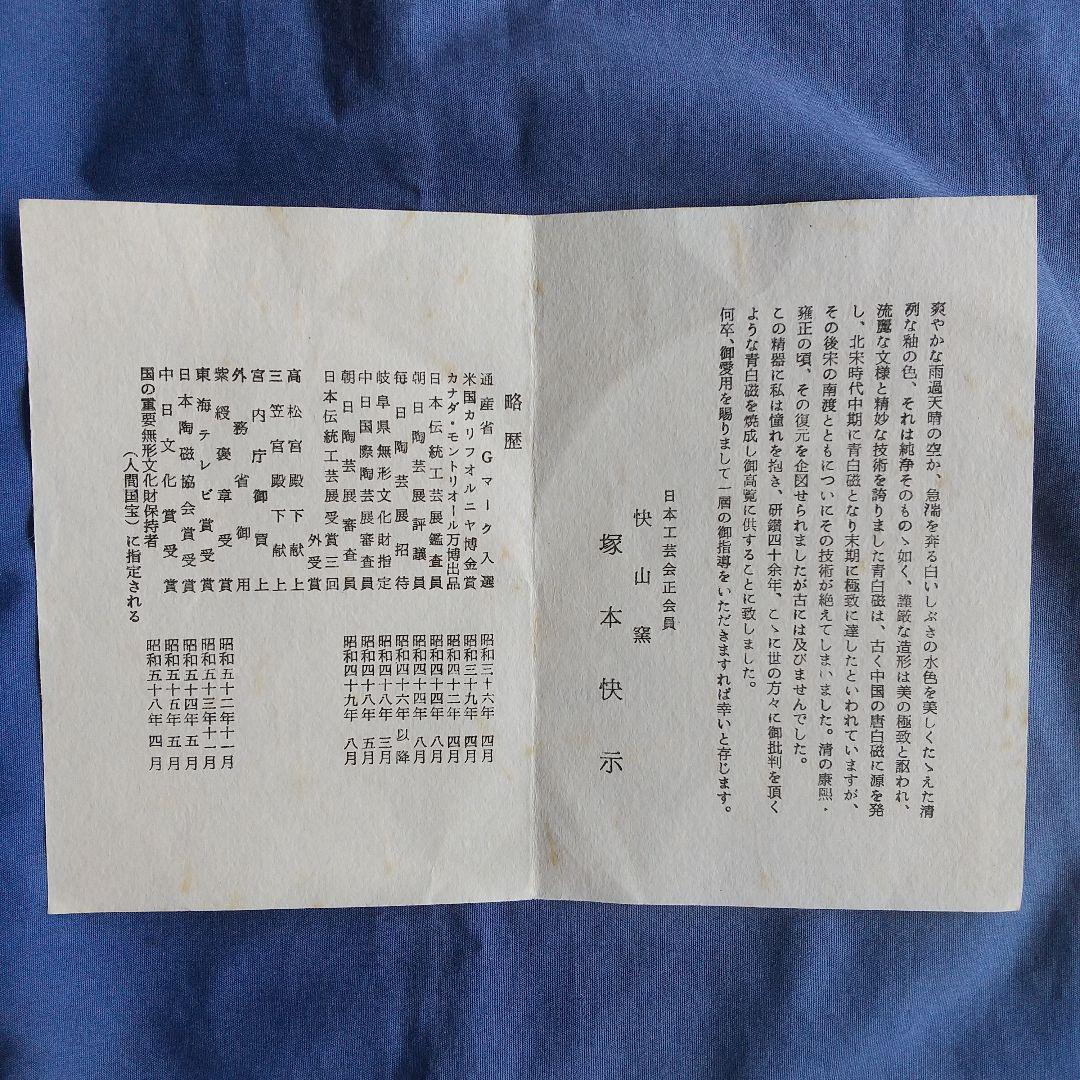 爽やかな雨過天晴の空か、急湍を奔る白いしぶきの水色を美しくたゝえた清
冽な釉の色、それは純浄そのものゝ如く、謹厳な造形は美の極致と謳われ、
流麗な文様と精妙な技術を誇りました青白磁は、古く中国の唐白磁に源を発
し、北宋時代中期に青白磁となり末期に極致に達したといわれていますが、
その後宋の南渡とともについにその技術が絶えてしまいました。清の康熙・
雍正の頃、その復元を企図せられましたが古には及びませんでした。
この精器に私は憧れを抱き、研鑽四十余年、こゝに世の方々に御批判を頂く
ような青白磁を焼成し御高覧に供することに致しました。
何卒、御愛用を賜りまして一層の御指導をいただきますれば幸いと存じます。
日本工芸会正会員
快山窯
塚本快示
略歴
通産省Gマーク入選 昭和三十六年 四月
米国カリフオルニヤ博金賞 昭和三十九年 四月
カナダ・モントリオール万博出品 昭和四十二年 四月
日本伝統工芸展鑑査員 昭和四十四年 八月
朝日陶芸展評議員 昭和四十四年 八月
毎日陶芸展招待 昭和四十六年以降
岐阜県無形文化財指定 昭和四十八年 三月
中日国際陶芸展審査員 昭和四十八年 五月
朝日陶芸展審査員 昭和四十九年 八月
日本伝統工芸展受賞三回
外受賞
高松宮殿下献上
三笠宮殿下献上
宮内庁御買上
外務省御用
紫綬褒章受賞 昭和五十二年十一月
東海テレビ賞受賞 昭和五十三年十一月
日本陶磁協会賞受賞 昭和五十四年 五月
中日文化賞受賞 昭和五十五年 五月
国の重要無形文化財保持者 昭和五十八年 四月
(人間国宝)に指定される